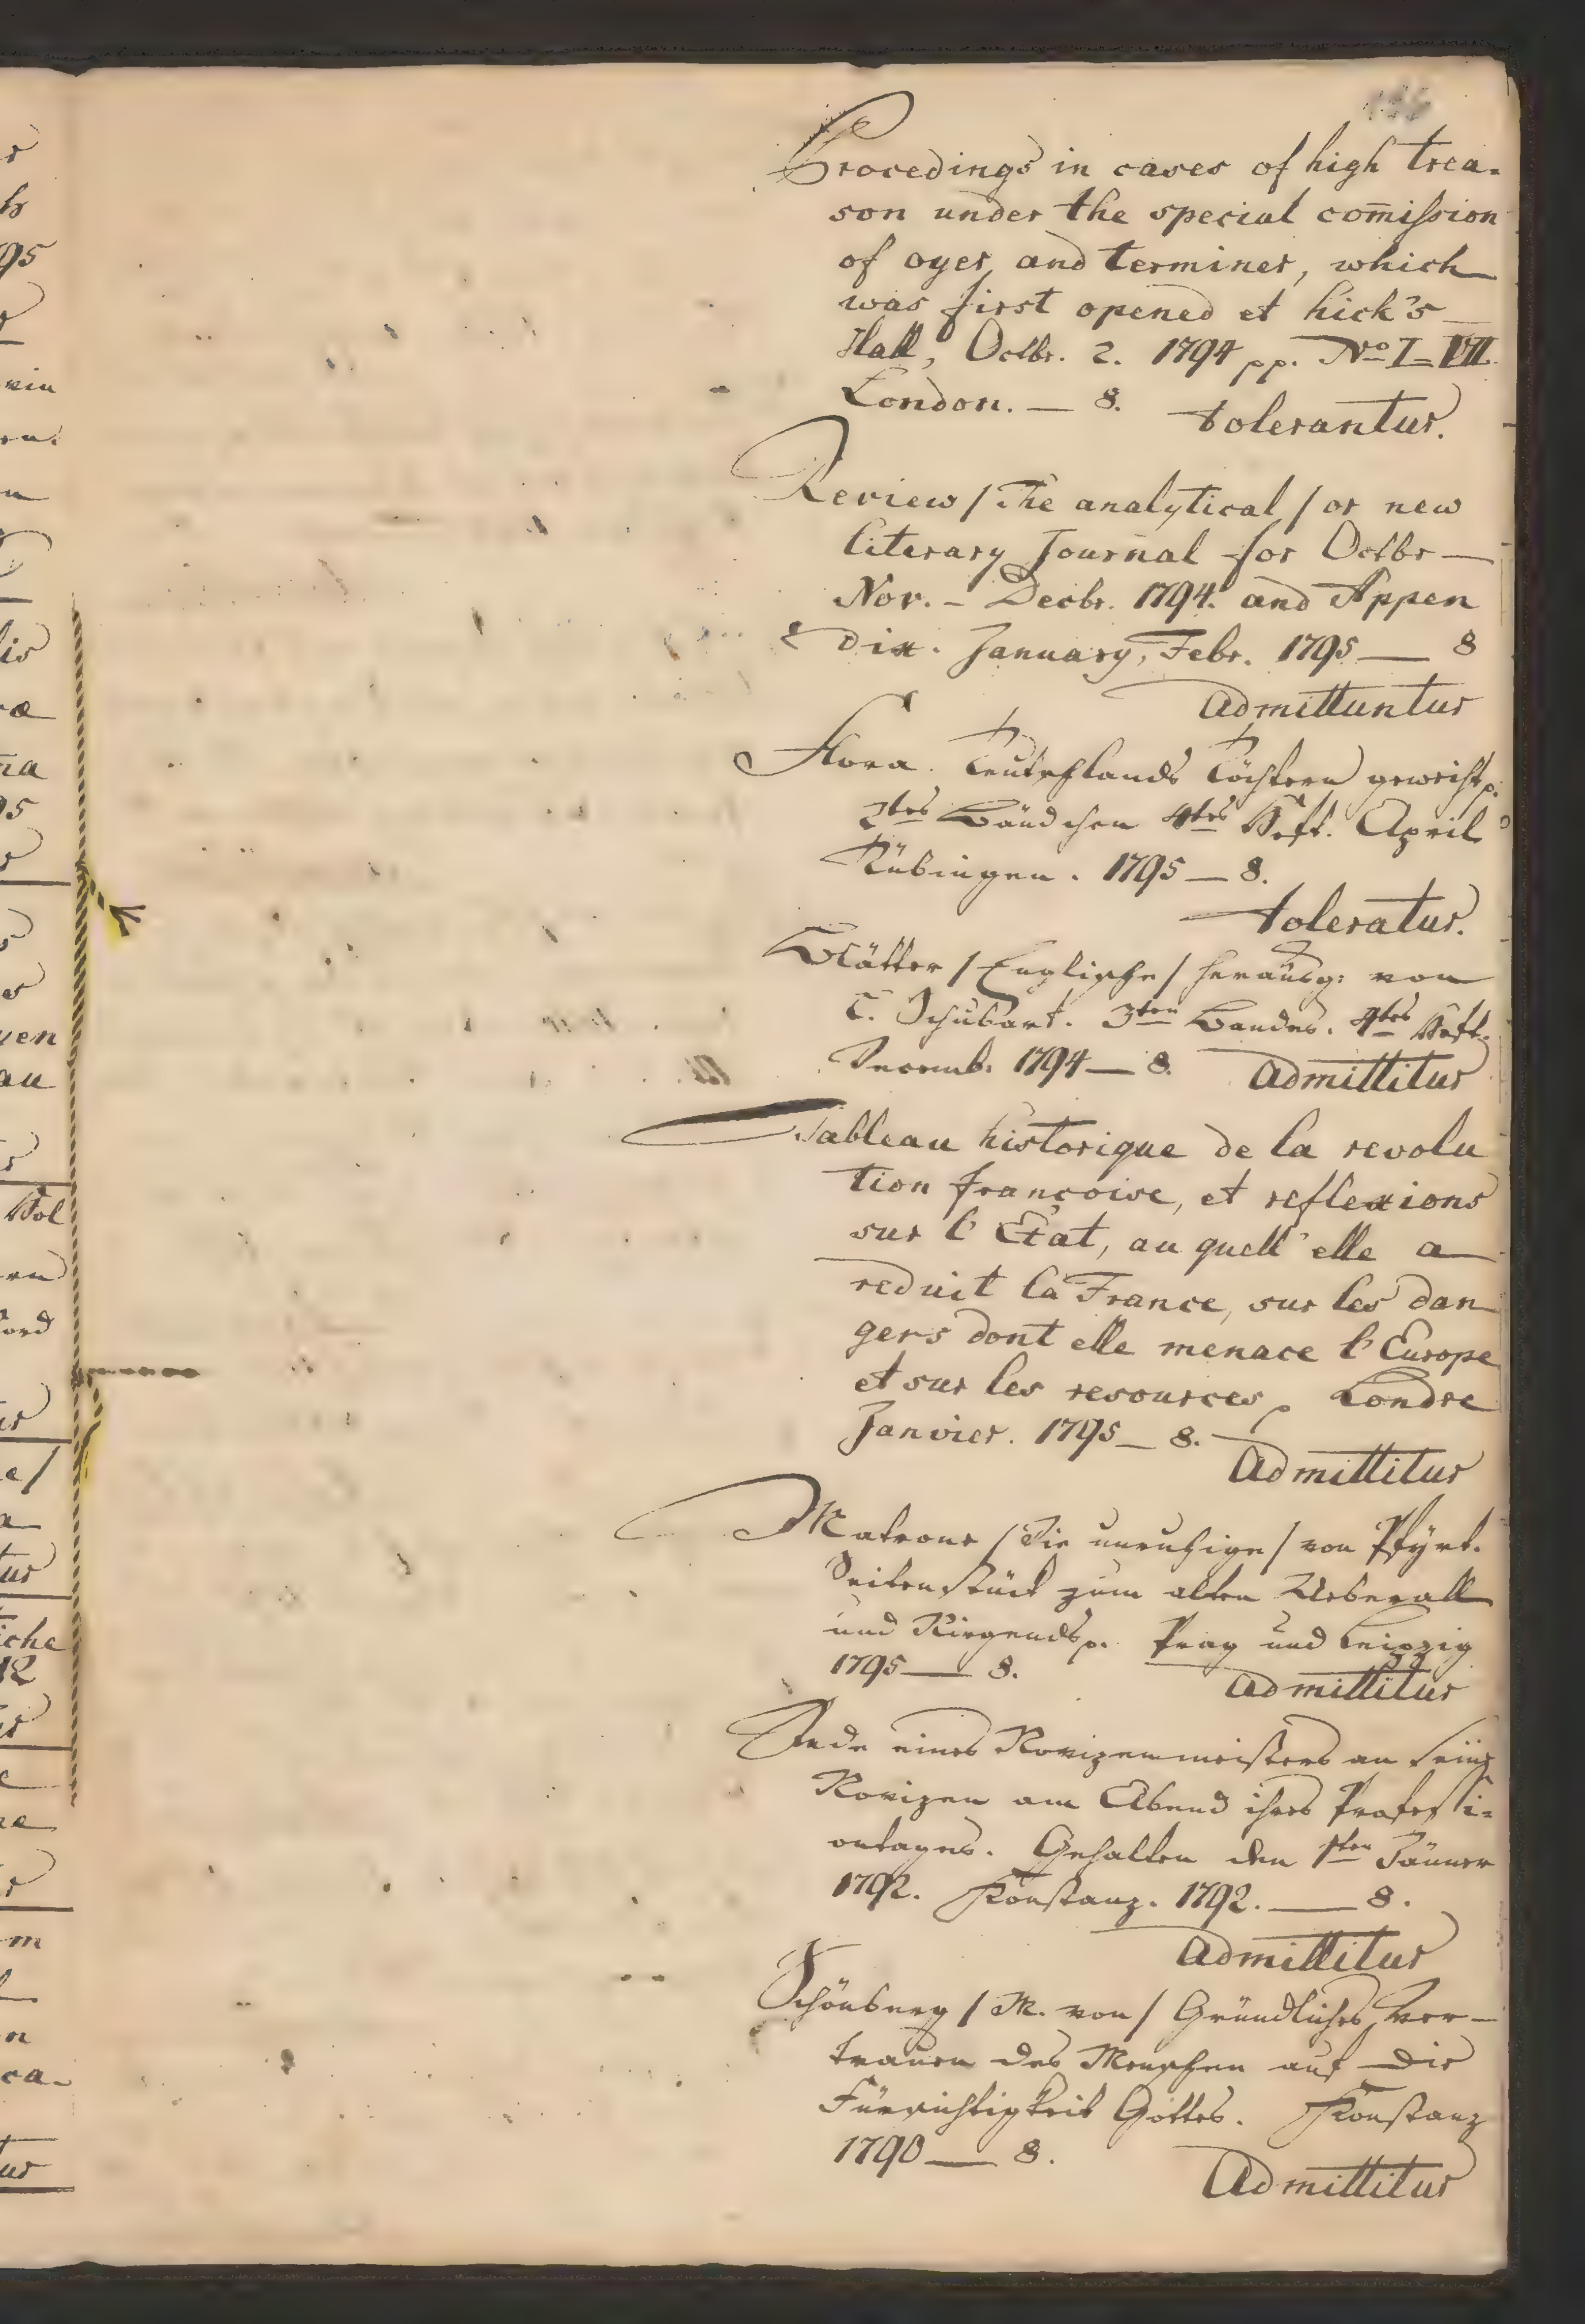 Procedings in cases of high trea-
son under the special com̄ission
of oyer, and terminer, which
was first opened et hick's
Hall, Octbr. 2. 1794 pp. No I–VII
London. — 8. tolerantur.
Review / The analytical / or new
literary Journal for Octbr —
Nov. – Decbr. 1794. and Appen
dix. January, Febr. 1795 — 8
Admittuntur
Flora. Teutschlands Töchtern geweiht p.
2tes Bändchen 4tes Heft. April
Tübingen. 1795 — 8.
toleratur.
Blätter / Englische / herausg: von
C. Schubart. 3ten Bandes. 4tes Heft.
Decemb. 1794 — 8. Admittitur
Tableau historique de la revolu
tion françoise, et reflexions
sur l'Etat, au quell' elle a
reduit la France, sur les dan
gers dont elle menace l'Europe
et sur les resources p Londre
Janvier. 1795 — 8.
Admittitur
Matrone / Die unruhige / von Pfyrt.
Seitenstück zum alten Ueberall
und Nirgends p. Prag und Leipzig
1795 — 8. Admittitur
Rede eines Novizenmeisters an seine
Novizen am Abend ihres Professi-
onstages. Gehalten den 1ten Jänner
1792. Konstanz. 1792. — 8.
Admittitur
Schönberg / M. von / Gründliches Ver-
trauen des Menschen auf die
Fürsichtigkeit Gottes. Konstanz
1790 — 8.
Admittitur